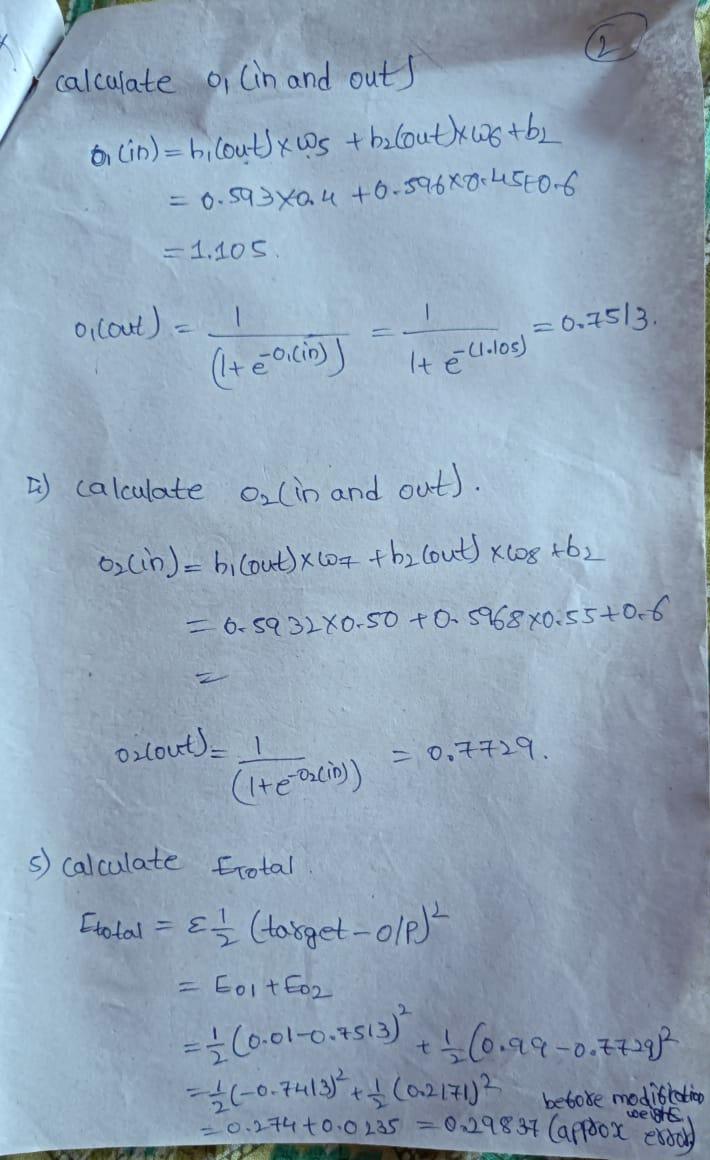 2
calculate o₁ (in and out)
o₁(in) = h₁(out) × w₅ + h₂(out) × w₆ + b₂
= 0.593 × 0.4 + 0.596 × 0.45 + 0.6
= 1.105.
o₁(out) = 1/(1+e^-o₁(in)) = 1/1+e^-(1.105) = 0.7513.
calculate o₂(in and out).
o₂(in) = h₁(out) × w₇ + h₂(out) × w₈ + b₂
= 0.5932 × 0.50 + 0.5968 × 0.55 + 0.6
=
o₂(out) = 1/(1+e^-o₂(in)) = 0.7729.
5) calculate Etotal.
Etotal = Σ 1/2 (target - o/p)²
= E₀₁ + E₀₂
= 1/2 (0.01-0.7513)² + 1/2 (0.99-0.7729)²
= 1/2 (-0.7413)² + 1/2 (0.2171)²
before modification weights
= 0.274 + 0.0235 = 0.29837 (approx error)